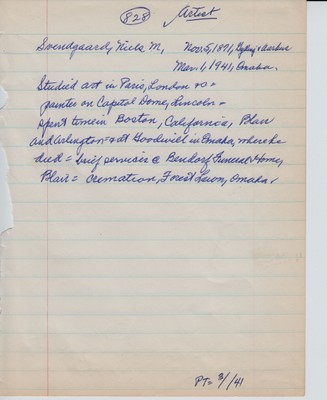 828 Artist
Svendgaard, Niels M, Nov. 5, 1871,
Mar. 1, 1941, Omaha.
Studied art in Paris, London +
painter on Capitol Dome, Lincoln -
spent time in Boston, California, Blair
and Arlington + at Goodwill in Omaha, where he
died = brief services @ Bendorf Funeral Home,
Blair = Cremation, Forest Lawn, Omaha,
PT= 3/41